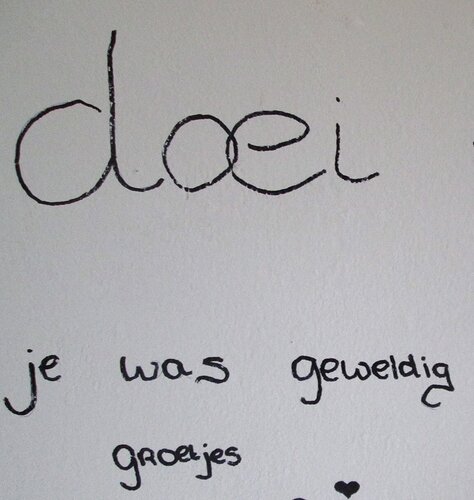 doei
je was geweldig
groetjes